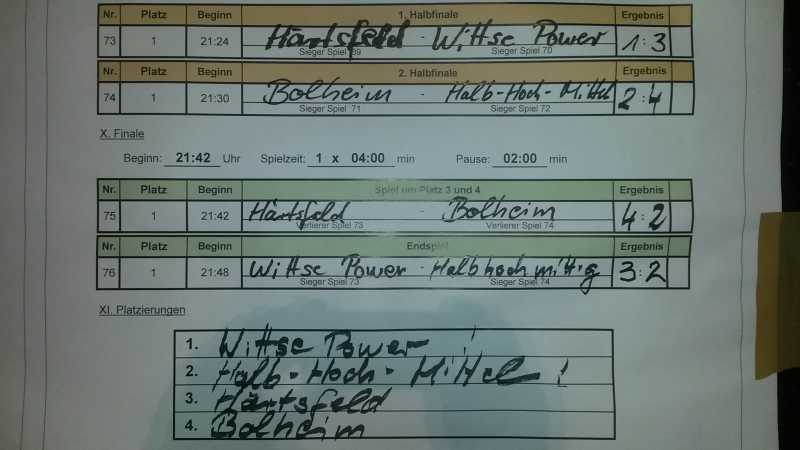 Nr. Platz Beginn 1. Halbfinale Ergebnis
73 1 21:24 Härtsfeld - Wittse Power 1:3
Sieger Spiel 69 Sieger Spiel 70
Nr. Platz Beginn 2. Halbfinale Ergebnis
74 1 21:30 Bolheim - Halb-Hoch-Mittel 2:4
Sieger Spiel 71 Sieger Spiel 72
X. Finale
Beginn: 21:42 Uhr Spielzeit: 1 x 04:00 min Pause: 02:00 min
Nr. Platz Beginn Spiel um Platz 3 und 4 Ergebnis
75 1 21:42 Härtsfeld - Bolheim 4:2
Verlierer Spiel 73 Verlierer Spiel 74
Nr. Platz Beginn Endspiel Ergebnis
76 1 21:48 Wittse Power - Halbhochmittig 3:2
Sieger Spiel 73 Sieger Spiel 74
XI. Platzierungen
1. Wittse Power !
2. Halb-Hoch-Mittel !
3. Härtsfeld
4. Bolheim